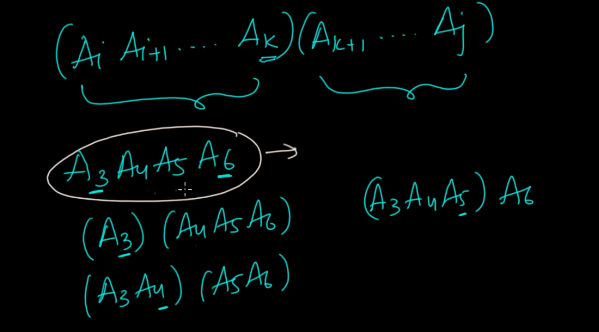 (Ai Ai+1 ..... Ak)(Ak+1 .... Aj)
A3 A4 A5 A6 →
(A3 A4 A5) A6
(A3) (A4 A5 A6)
(A3 A4) (A5 A6)